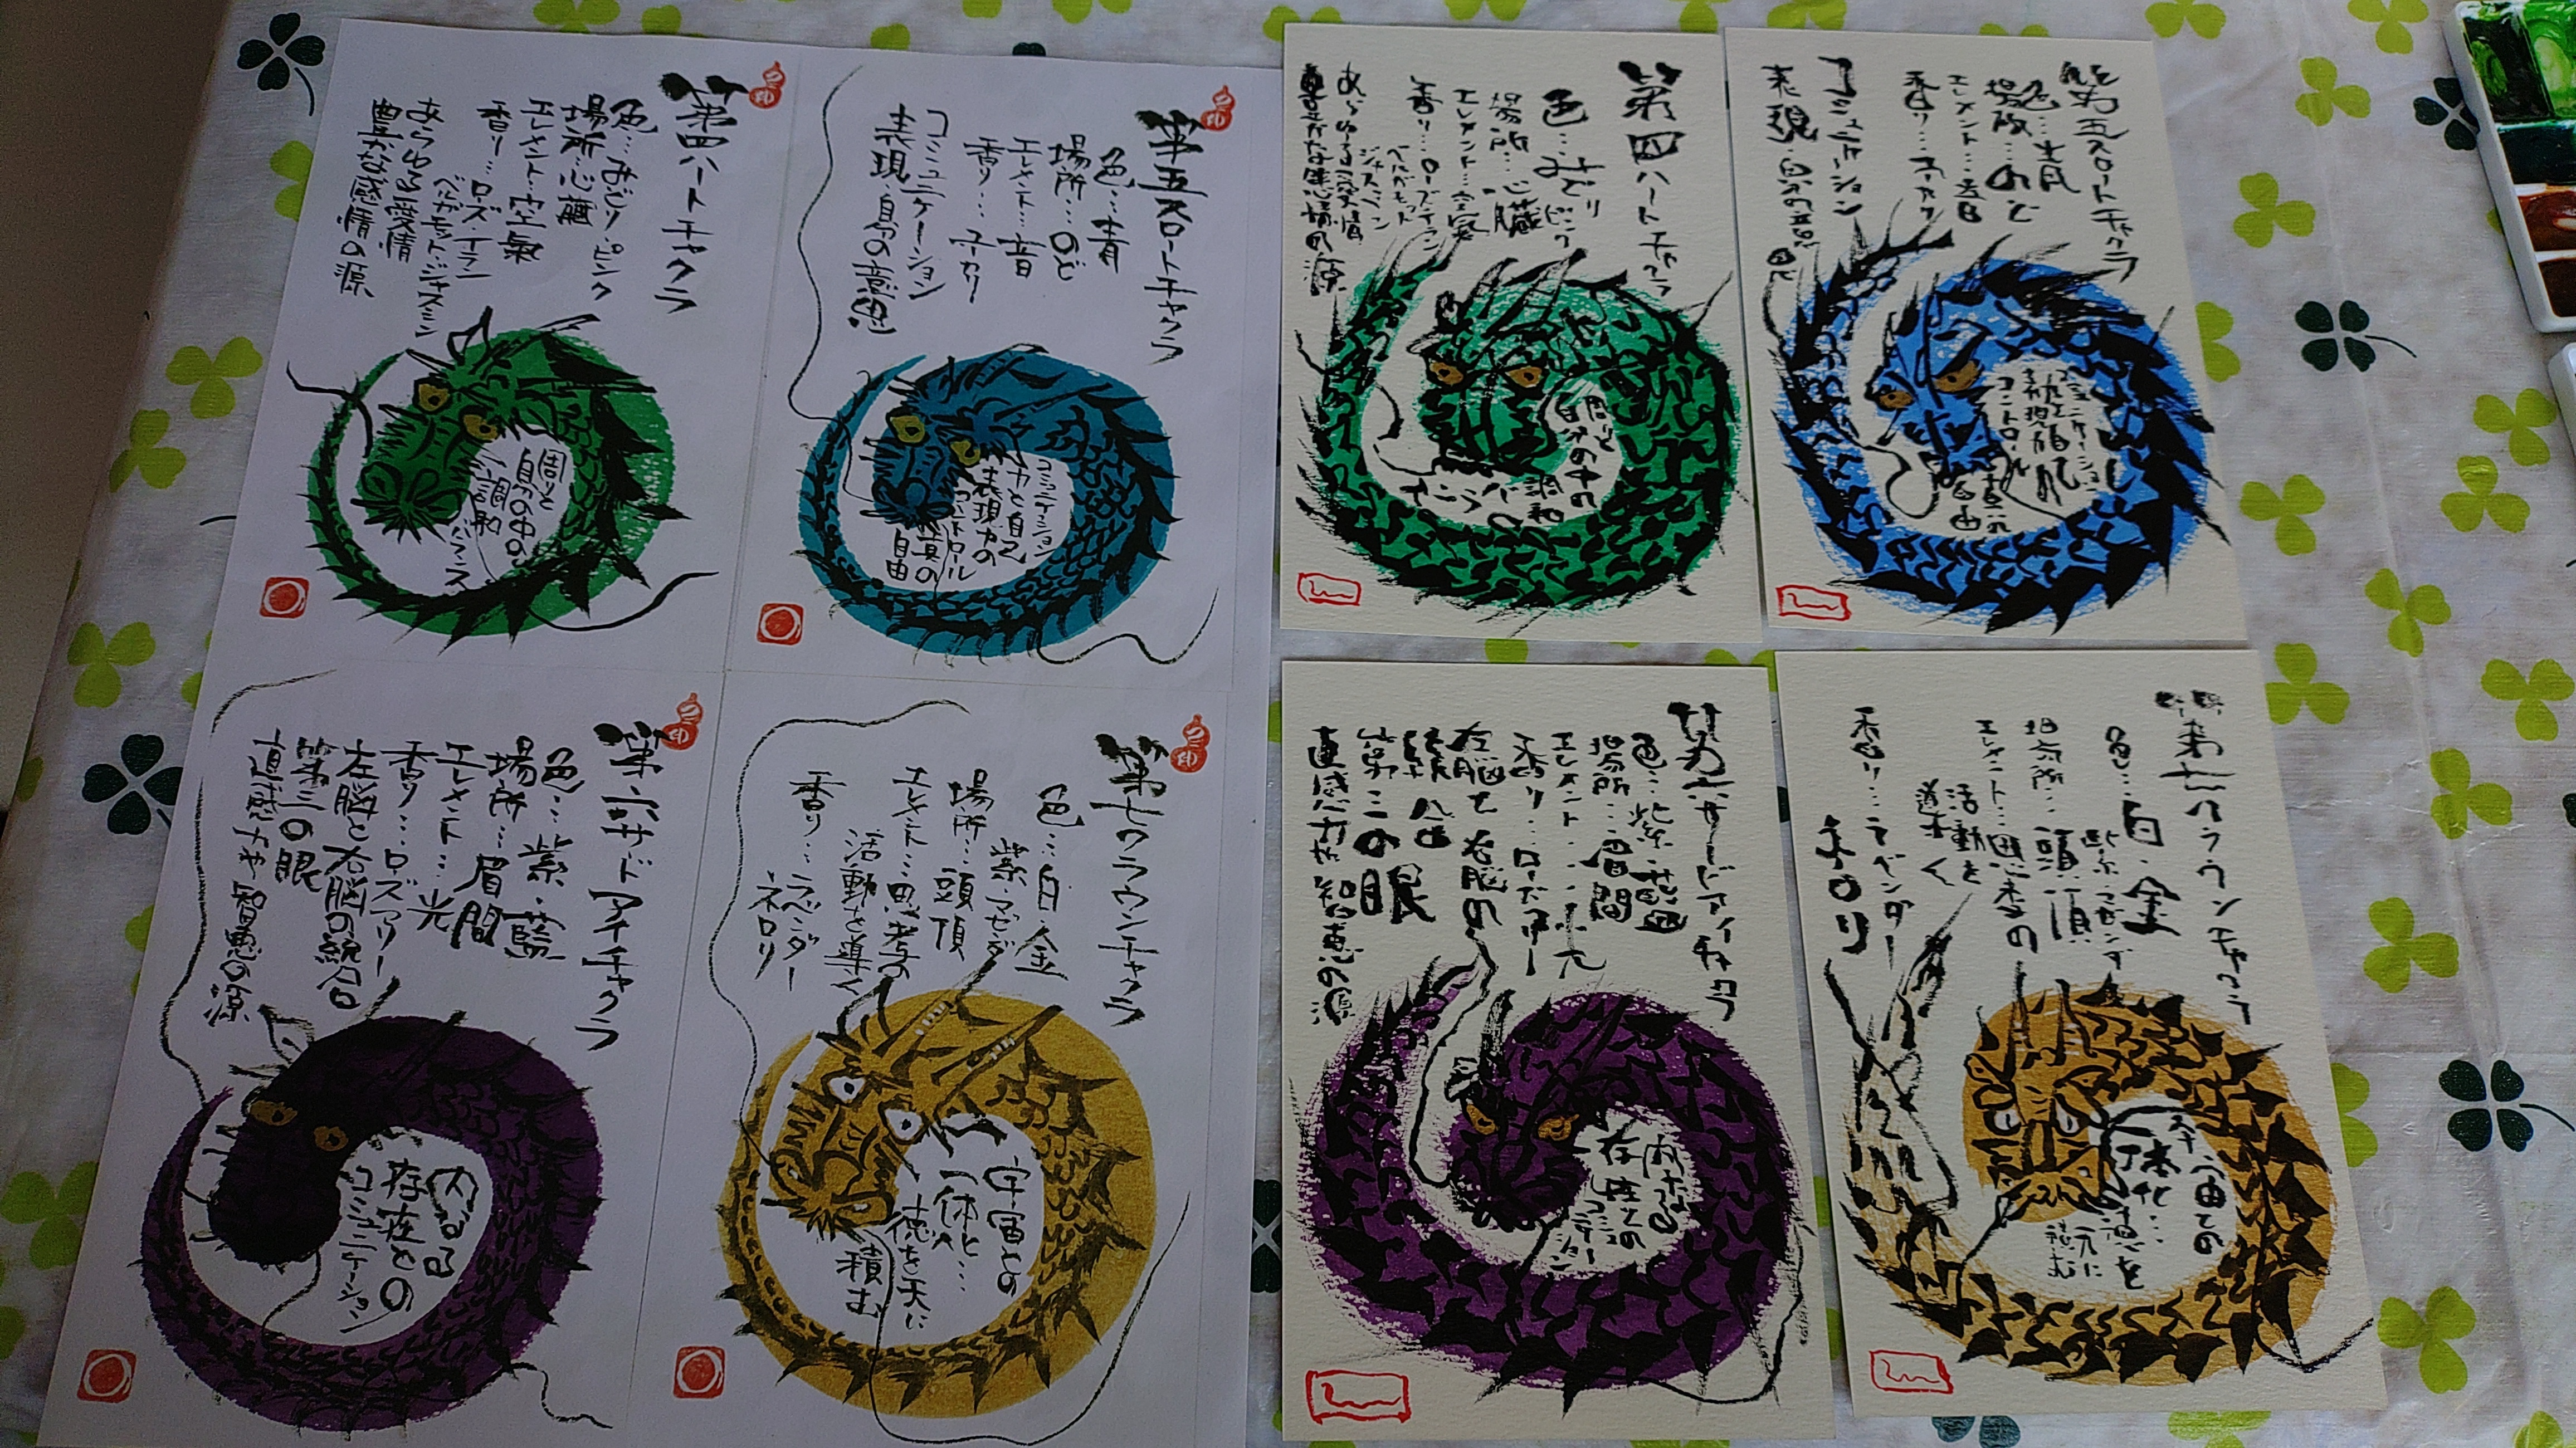 第四ハートチャクラ
色…みどり ピンク
場所…心臓
エレメント…空気
香り…ローズ・イラン
ベルガモット・ジャスミン
あらゆる愛情
豊かな感情の源
周りと
自分の中の
調和
バランス
第五スロートチャクラ
色…青
場所…のど
エレメント…音
香り…ユーカリ
コミュニケーション
表現・自分の意思
コミュニケーション
力と自己
表現力の
コントロール
真の
自由
第六サードアイチャクラ
色…紫・藍
場所…眉間
エレメント…光
香り…ローズマリー
左脳と右脳の統合
第三の眼
直感力や智恵の源
内なる
存在との
コミュニケーション
第七クラウンチャクラ
色…白・金
紫・マゼンダ
場所…頭頂
エレメント…思考の
活動を導く
香り…ラベンダー
ネロリ
宇宙との
一体化…
徳を天に
積む
第四ハートチャクラ
色…みどり ピンク
場所…心臓
エレメント…空気
香り…ローズ・イラン
ベルガモット
ジャスミン
あらゆる愛情
豊かな感情の源
周りと
自分の中の
調和
バランス
第五スロートチャクラ
色…青
場所…のど
エレメント…音
香り…ユーカリ
コミュニケーション
表現
コミュニケーション
コントロール
自由
第六サードアイチャクラ
色…紫・藍
場所…眉間
エレメント…光
香り…ローズマリー
左脳と右脳の
統合
第三の眼
直感力や智恵の源
内なる
存在との
コミュニケーション
第七クラウンチャクラ
色…白・金
紫・マゼンダ
場所…頭頂
エレメント…思考の
活動を
導く
香り…ラベンダー
ネロリ
宇宙との
一体化…
徳を
天に
積む